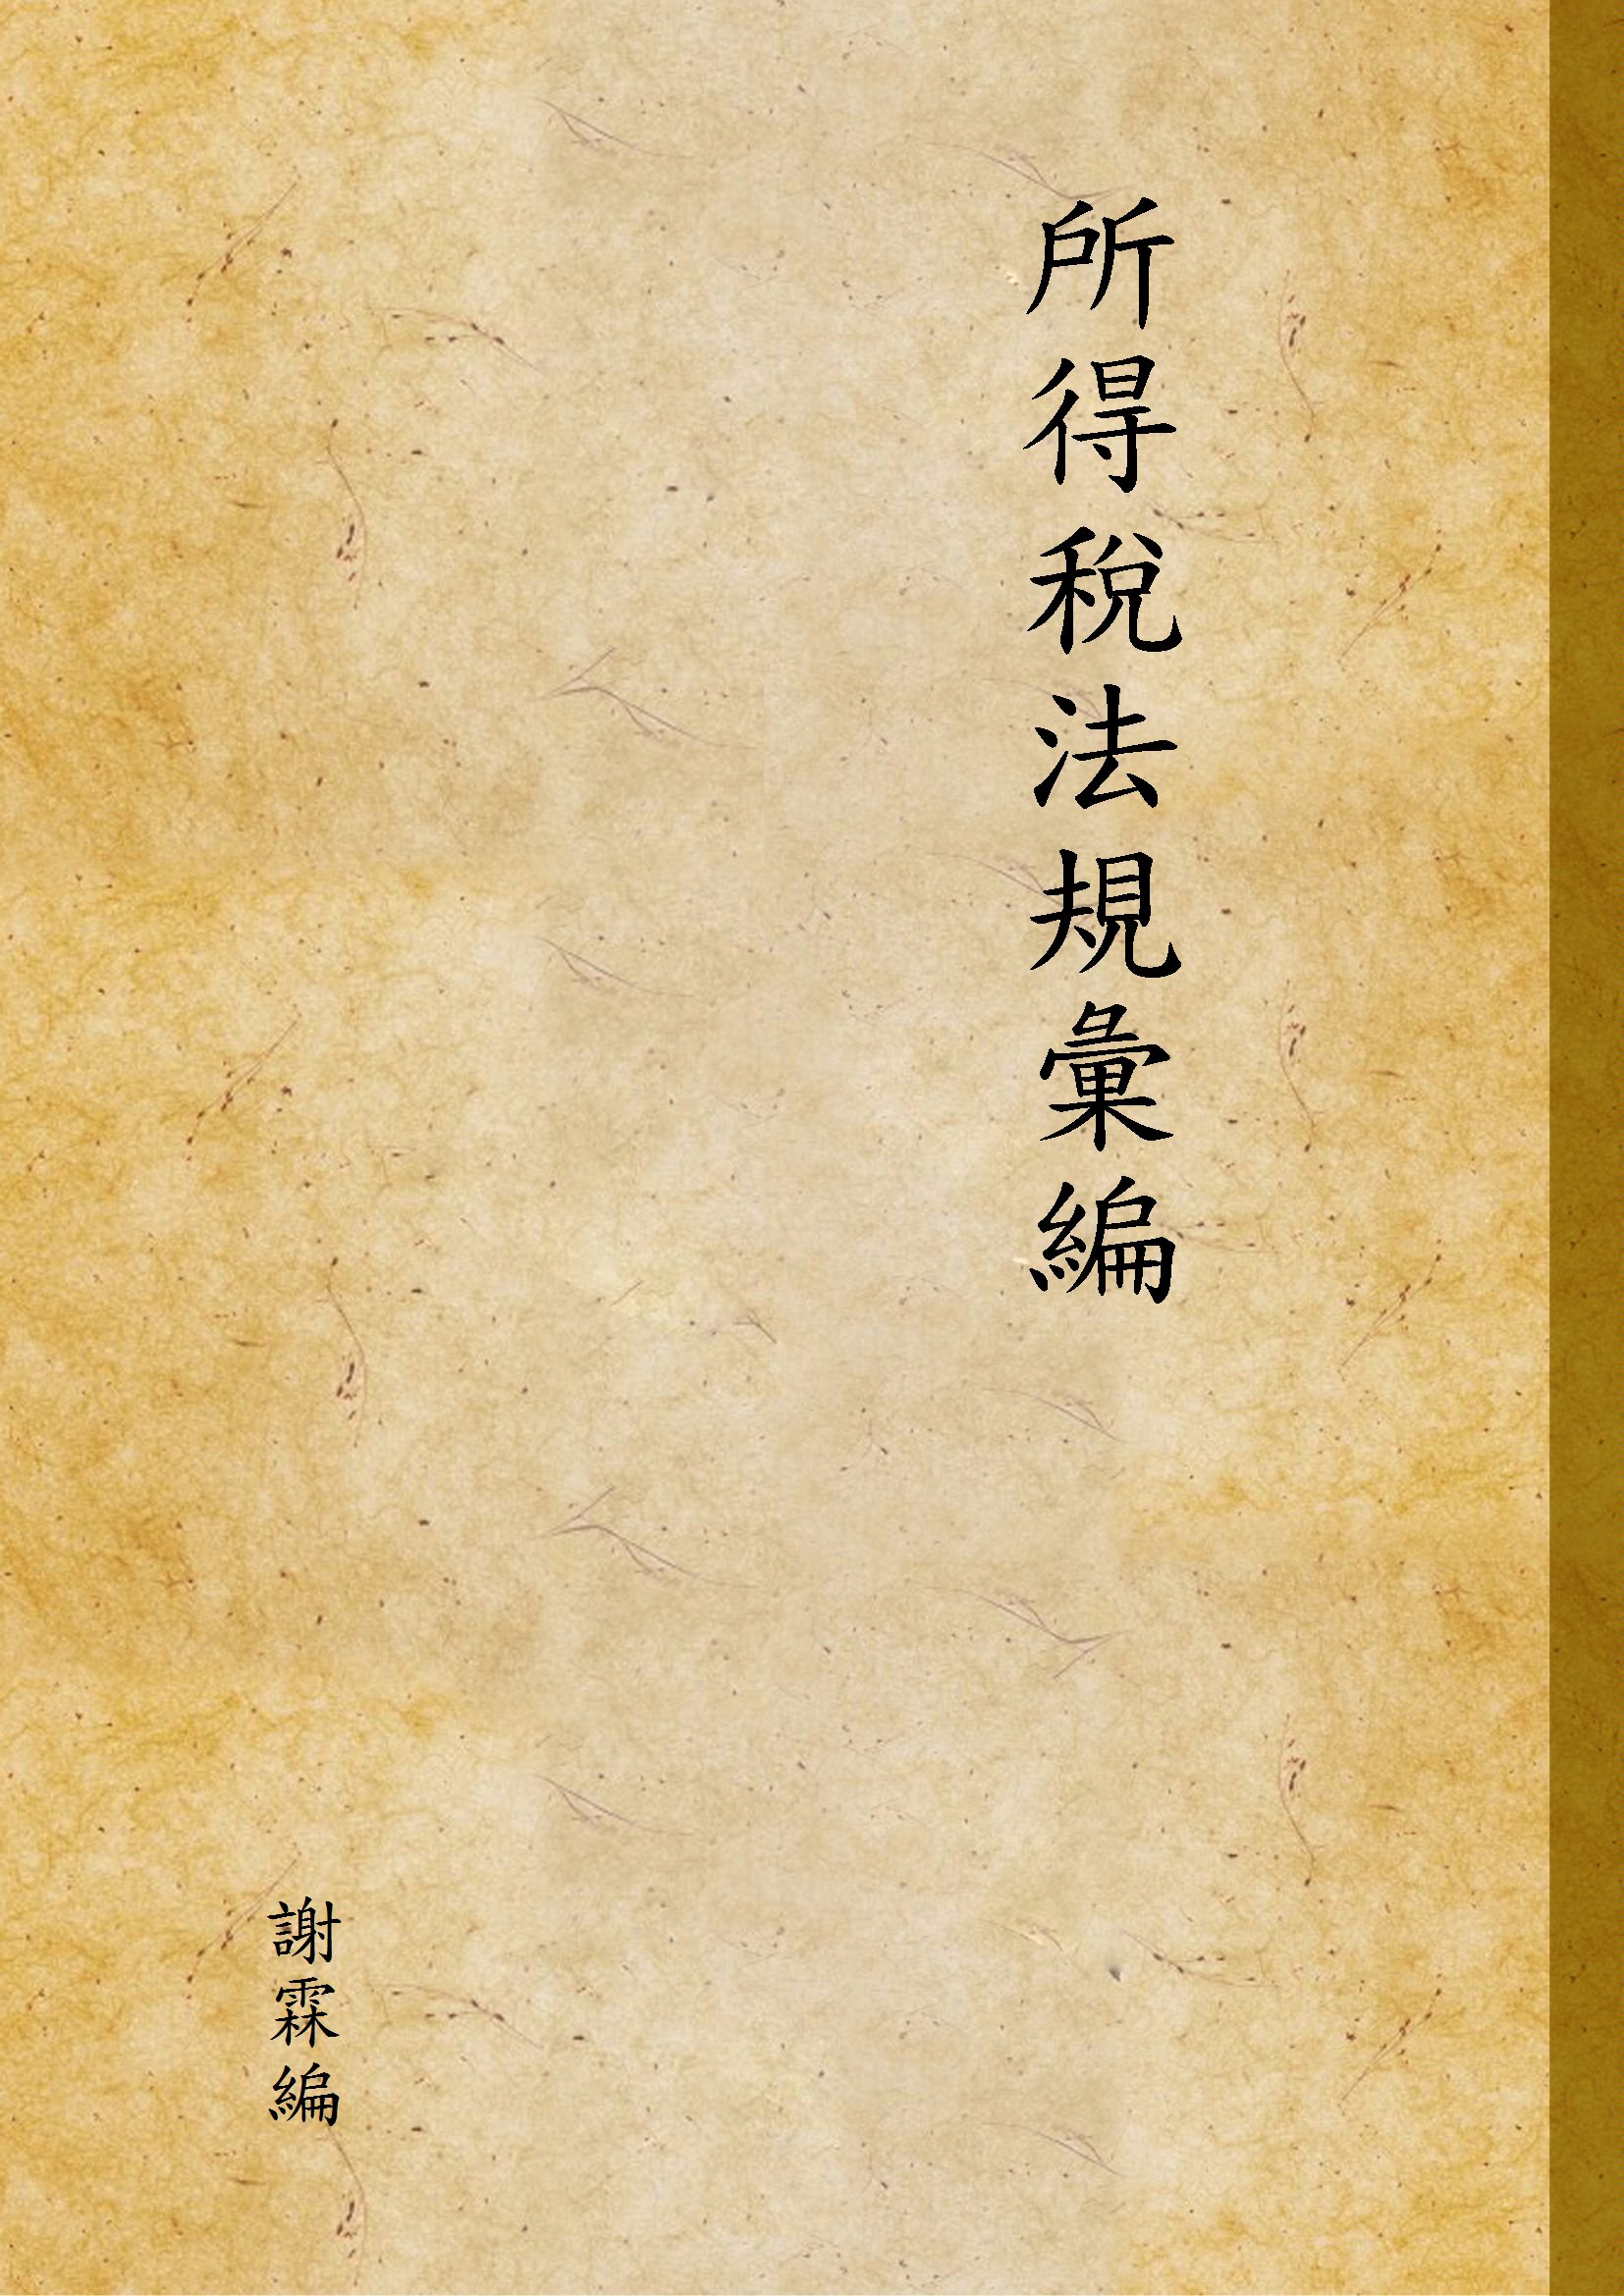 所得稅法規彙編
謝霖編